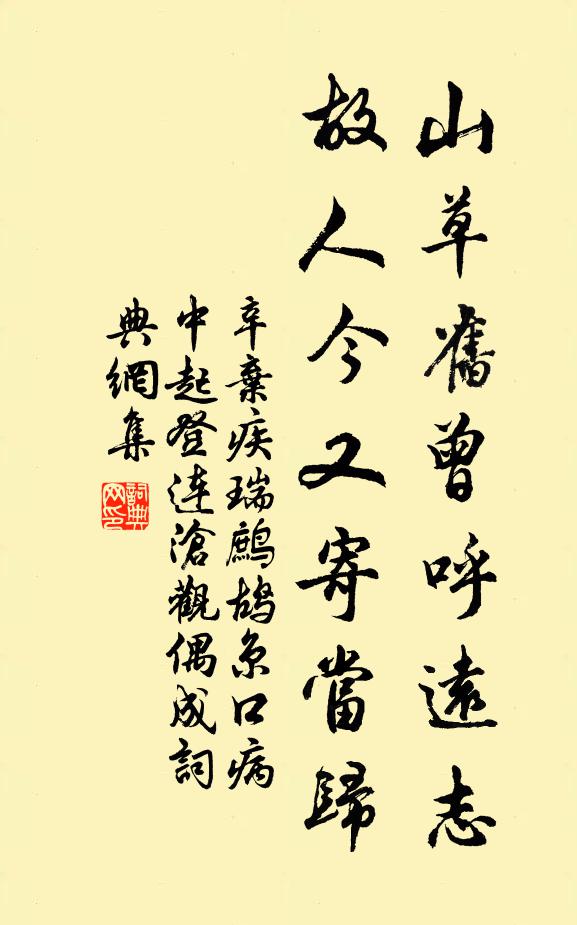 山草舊曾呼遠志
故人今又寄當歸
辛棄疾瑞鷓鴣京口病
中起登連滄觀偶成詞
典網集
詞典網印